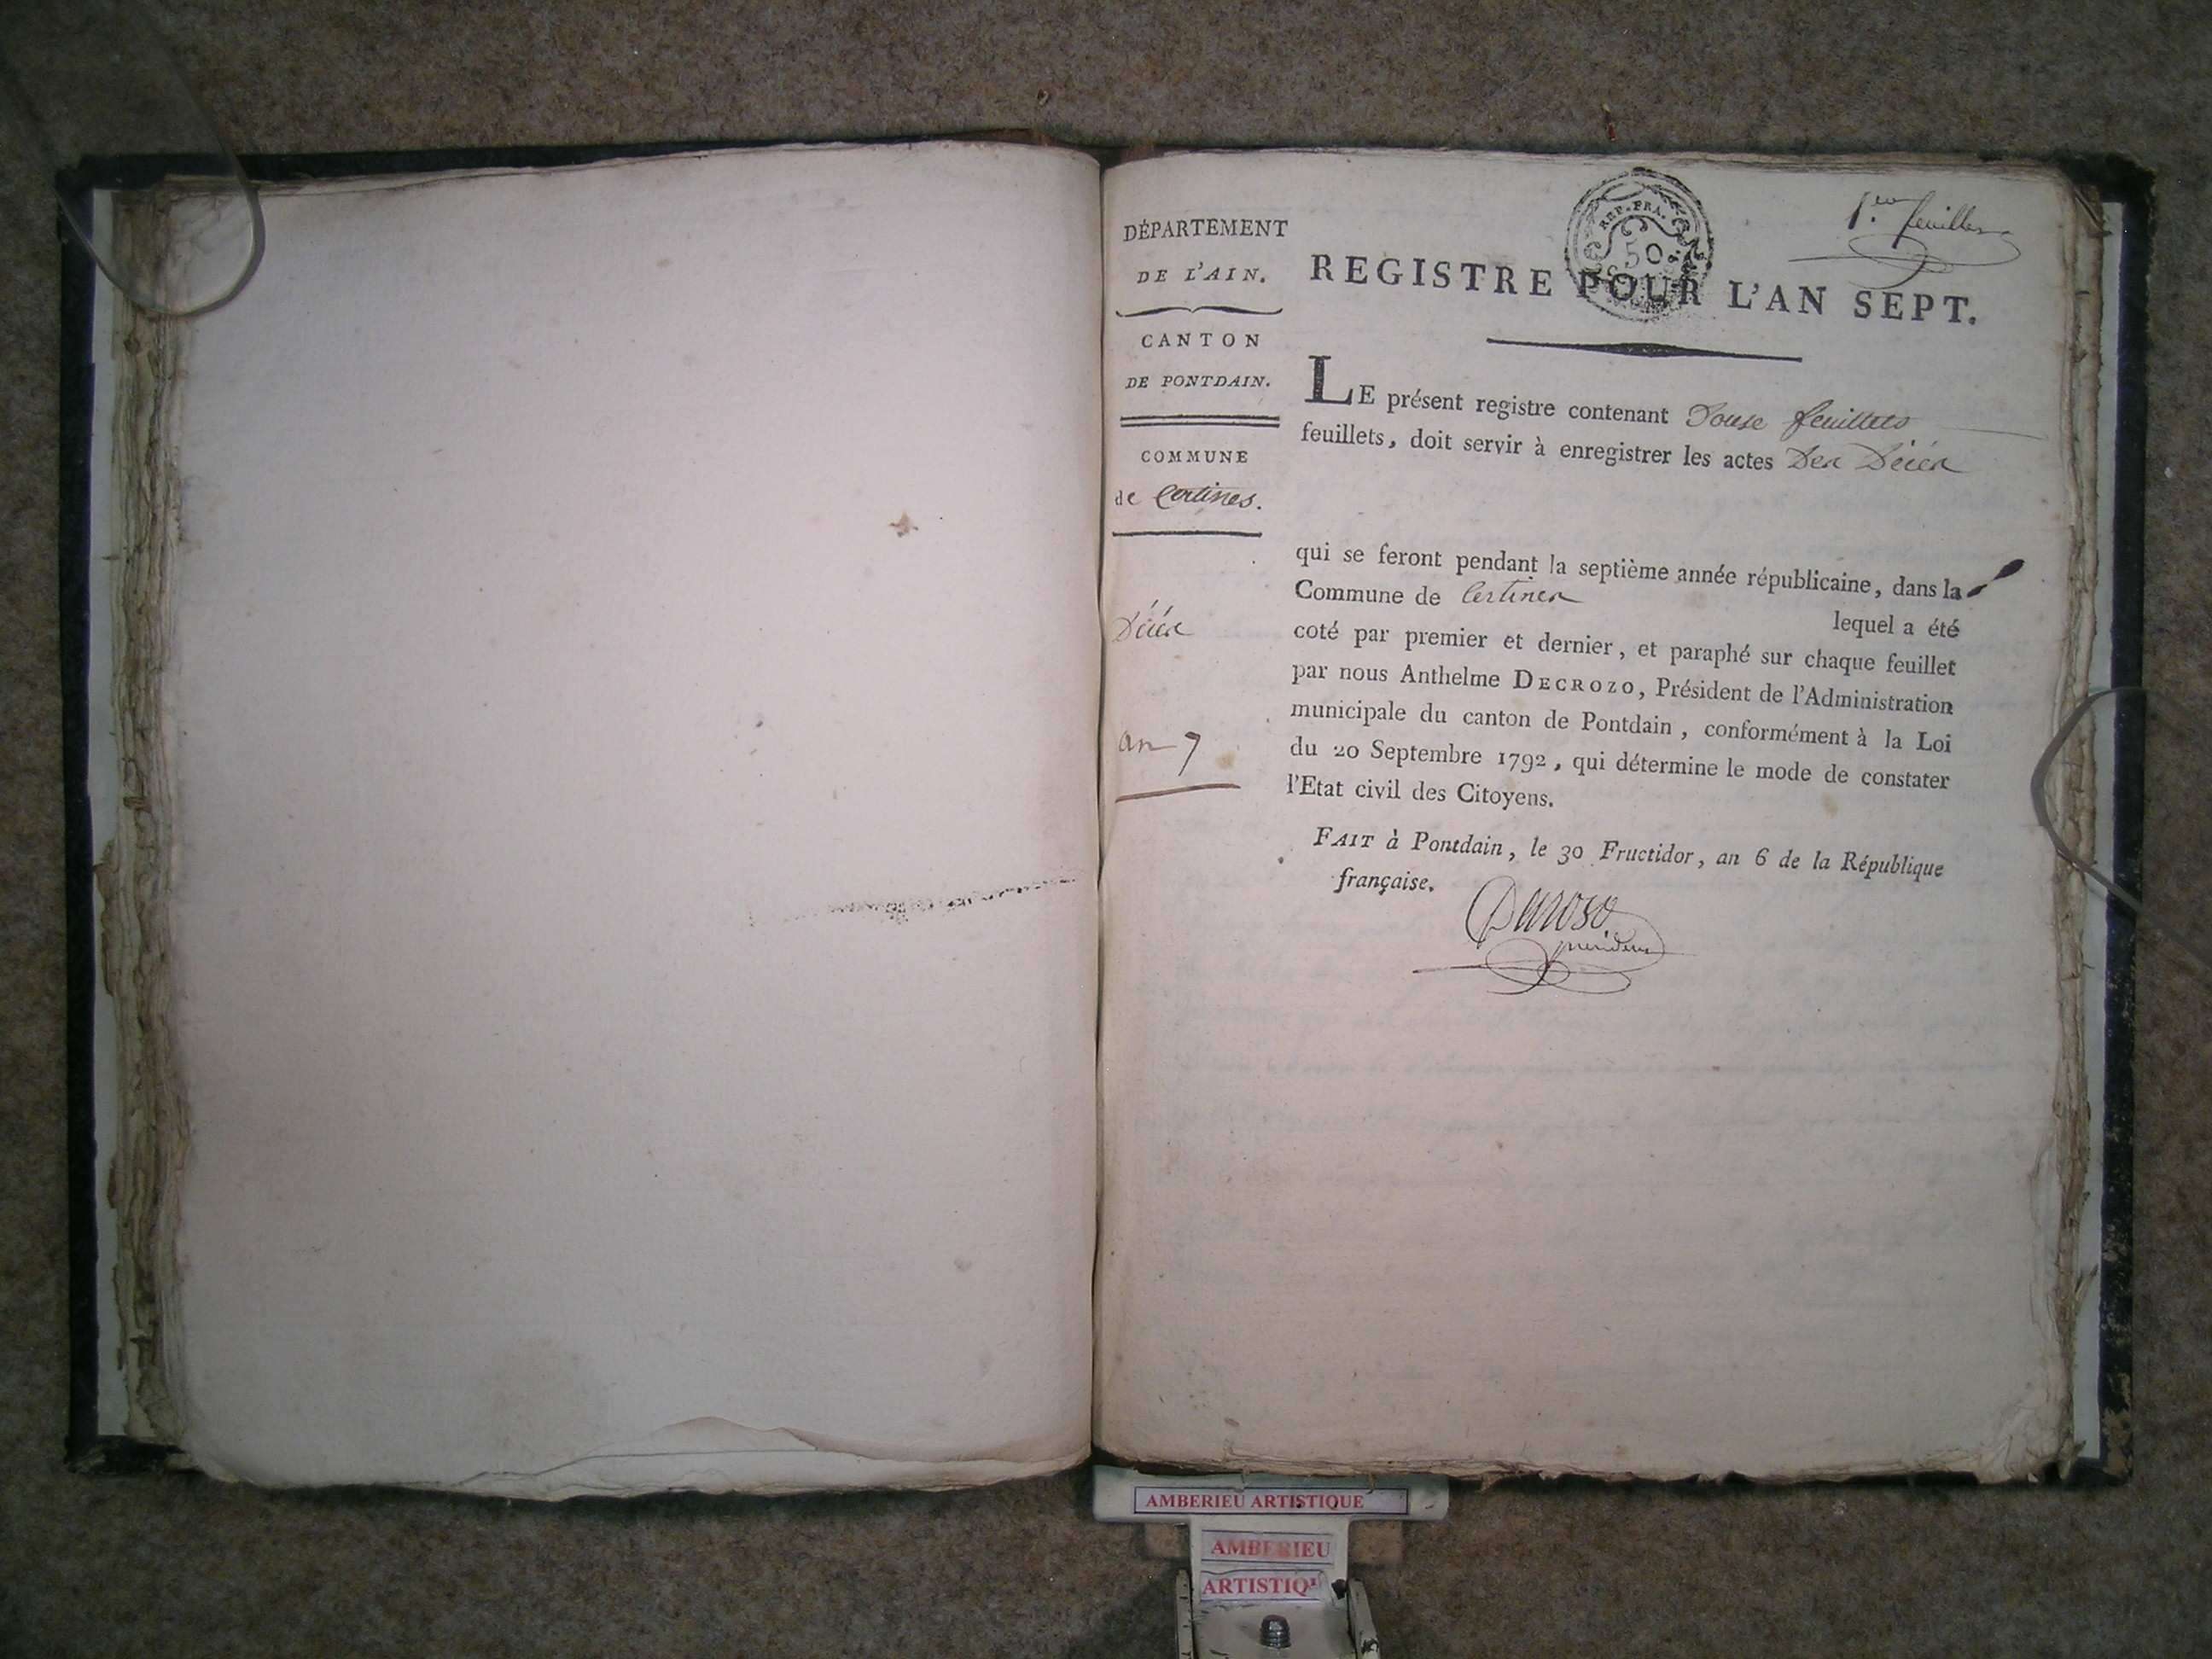 1.er feuillet
REP. FRA.
50
DÉPARTEMENT
DE L'AIN.
CANTON
DE PONTDAIN.
COMMUNE
de Certines.
Décès
an 7
REGISTRE POUR L'AN SEPT.
LE présent registre contenant Douse feuillets
feuillets, doit servir à enregistrer les actes Des Décès
qui se feront pendant la septième année républicaine, dans la
Commune de Certines
lequel a été
coté par premier et dernier, et paraphé sur chaque feuillet
par nous Anthelme DECROZO, Président de l'Administration
municipale du canton de Pontdain, conformément à la Loi
du 20 Septembre 1792, qui détermine le mode de constater
l'Etat civil des Citoyens.
FAIT à Pontdain, le 30 Fructidor, an 6 de la République
française.
Decroso
président
AMBERIEU ARTISTIQUE
AMBERIEU
ARTISTIQ